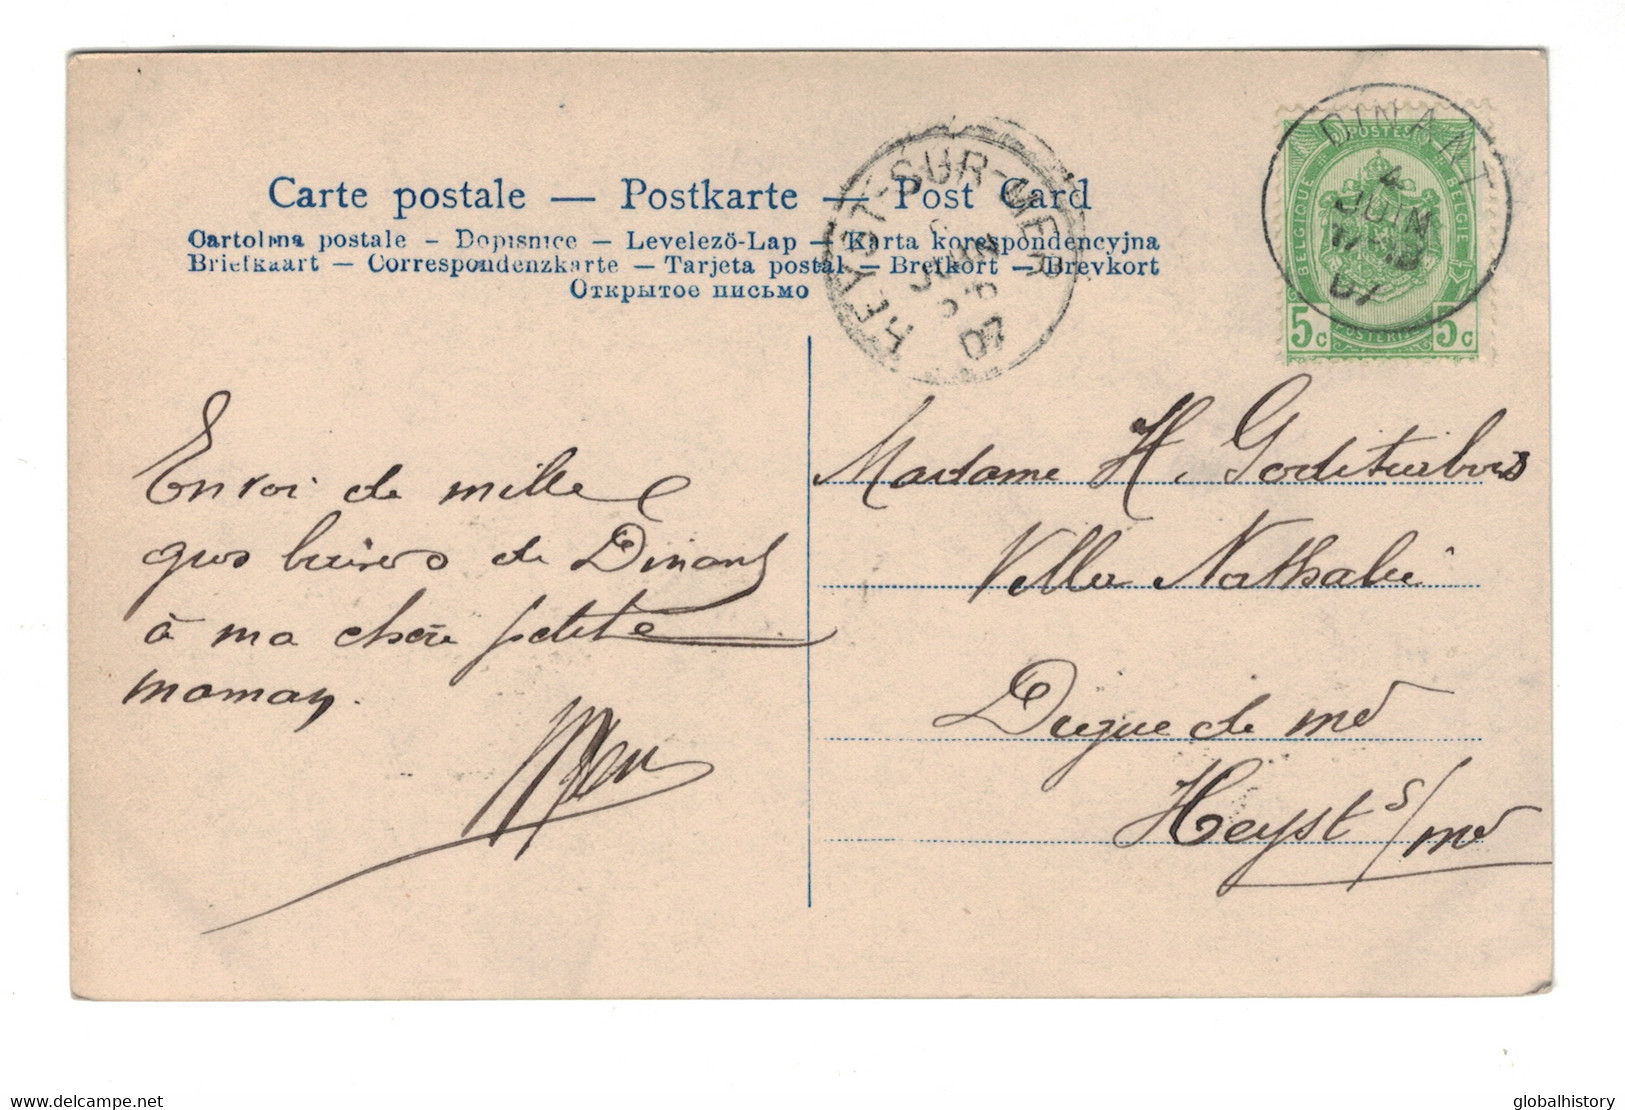 Carte postale — Postkarte — Post Card
Cartolina postale – Dopisnice – Levelező-Lap – Karta korespondencyjna
Briefkaart – Correspondenzkarte – Tarjeta postal – Brefkort – Brevkort
Открытое письмо
HEYST-SUR-MER
DINANT
4
JUIN
07
POSTES
BELGIQUE
BELGIË
5c
5c
Envoi de mille
gros baisers de Dinant
à ma chère petite
maman.
Madame H.
Villa Nathalie
Digue de mer
Heyst s/mer
delcampe.net
globalhistory